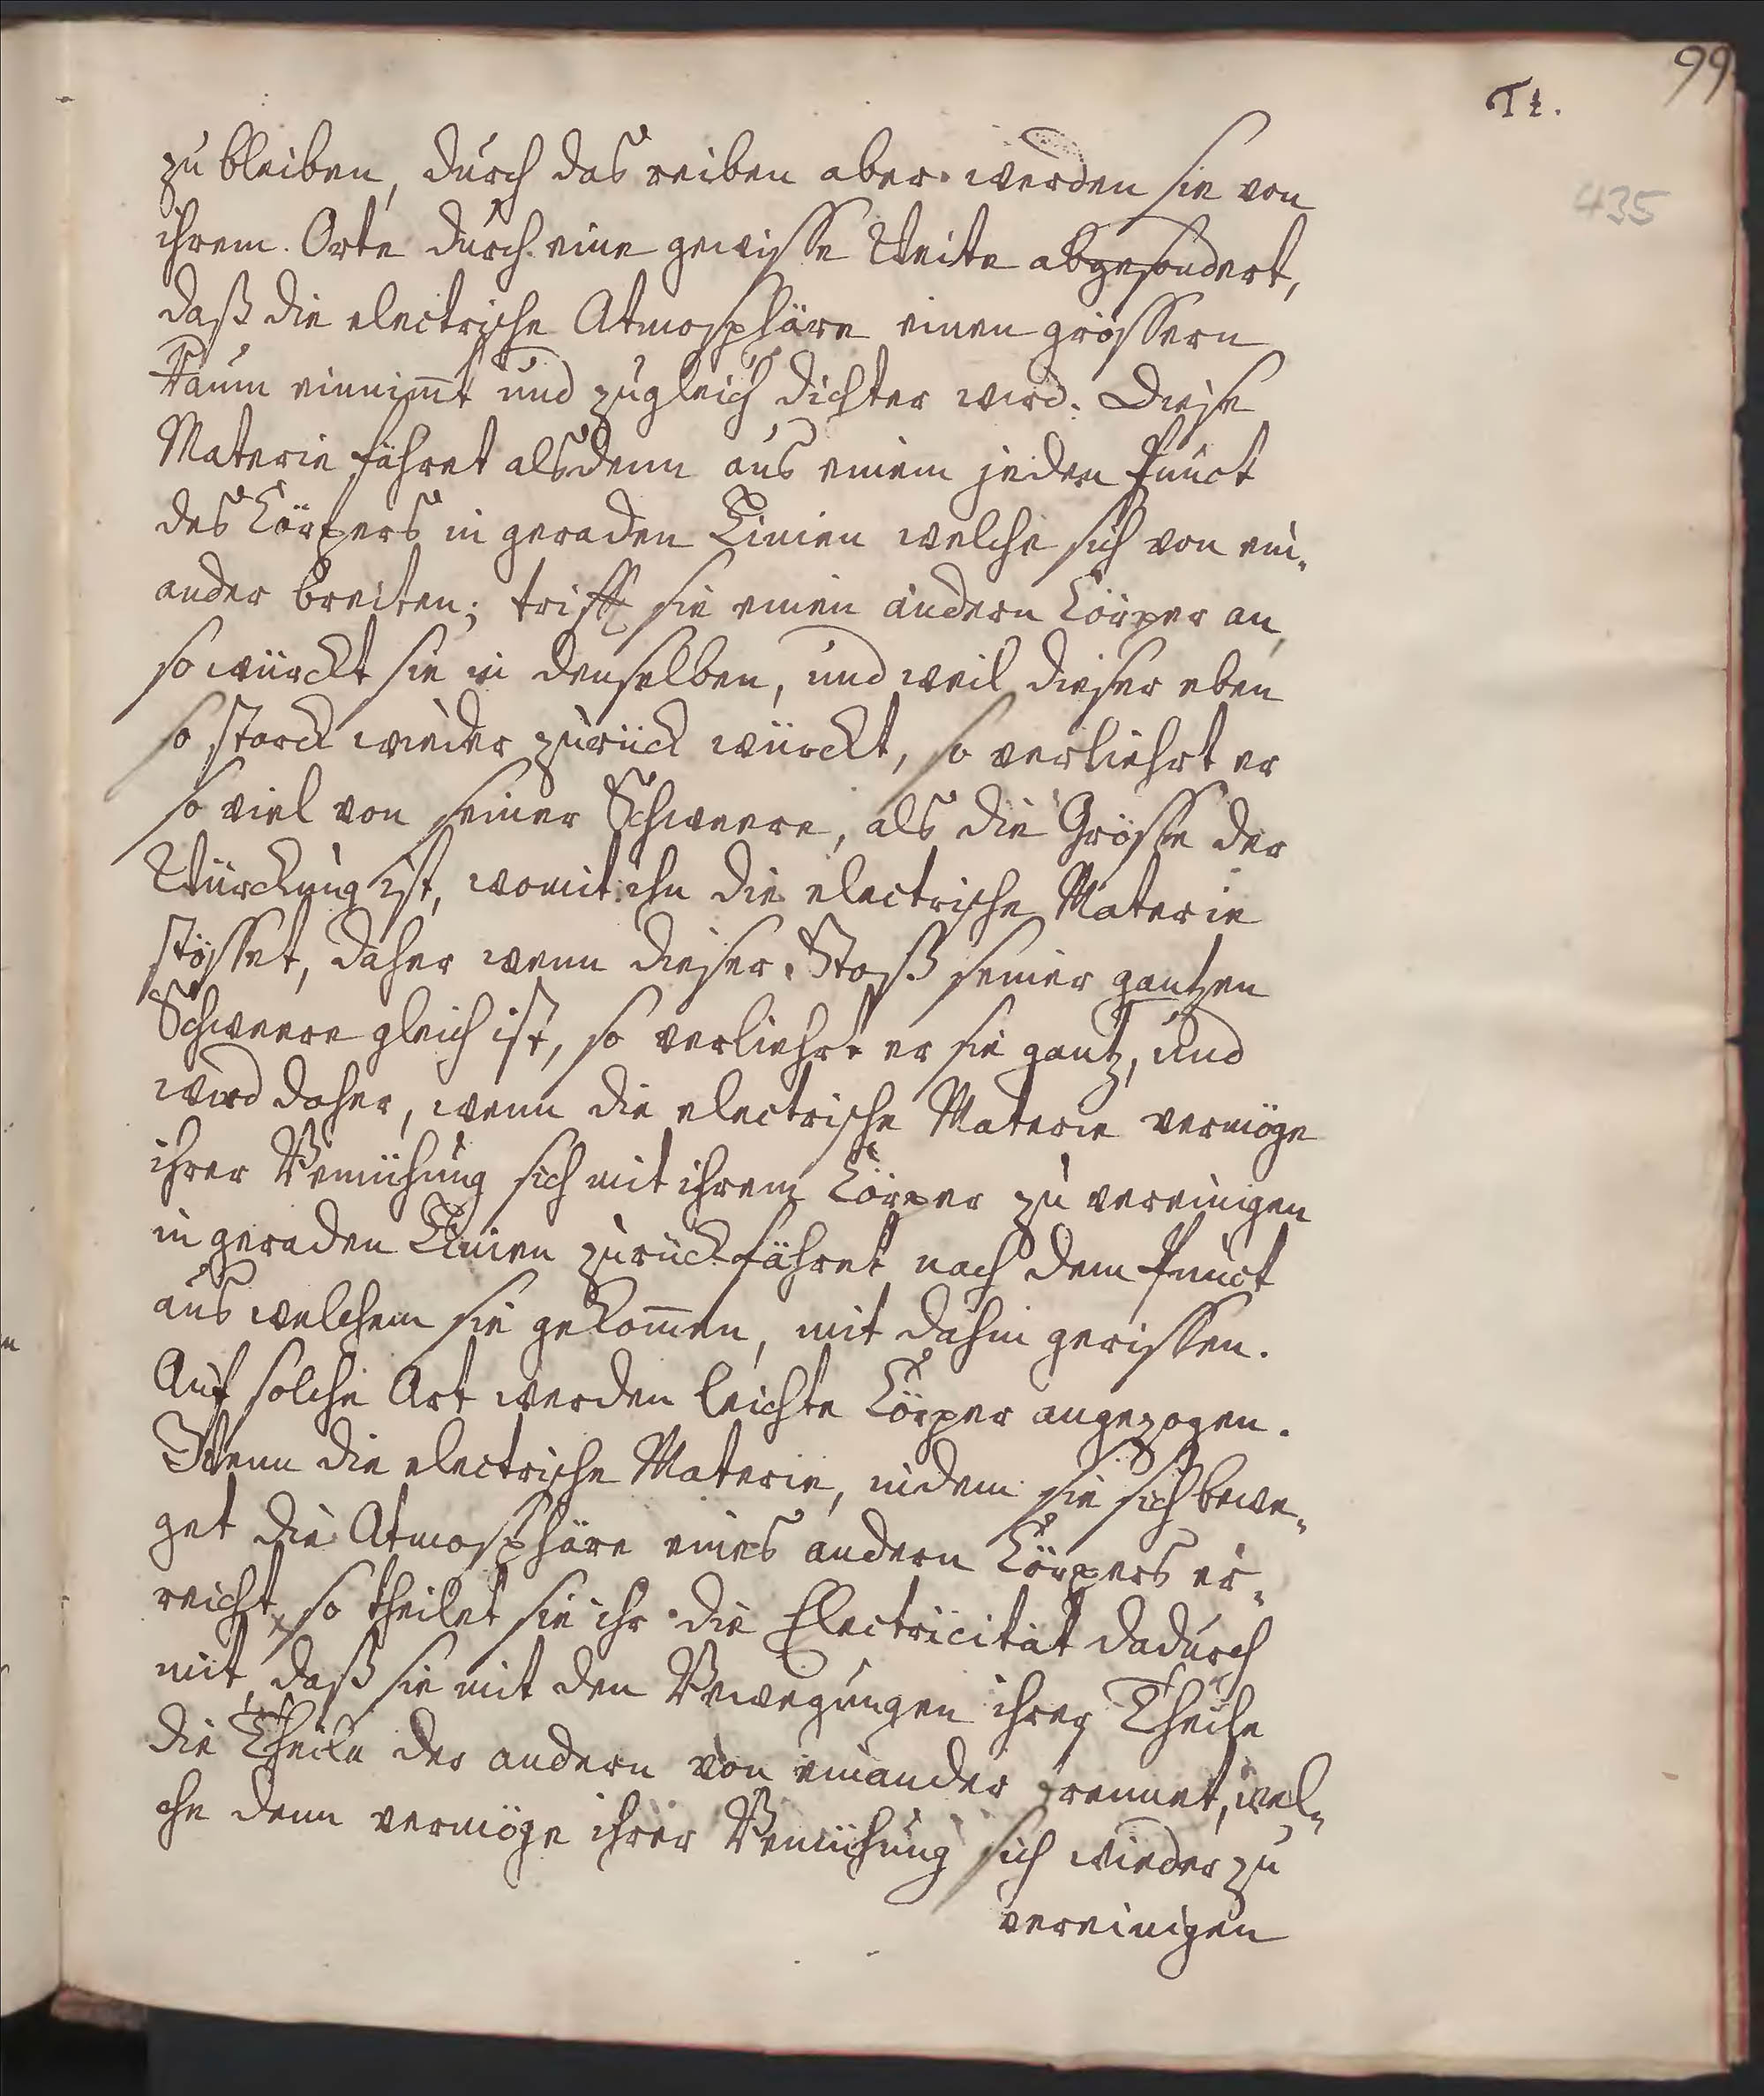 99
Tt.
435
zu bleiben, durch das reiben aber werden sie von
ihrem Orte durch eine gewisse Weite abgesondert,
daß die electrische Atmosphäre einen grössern
Raum einnim̅t und zugleich dichter wird. Diese
Materie fähret alsdenn aus einem jeden Punct
des Cörpers in geraden Linien welche sich von ein„
ander breiten; trifft sie einen andern Cörper an,
so würckt sie in denselben, und weil dieser eben
so starck wieder zurück würckt, so verliehrt er
so viel von seiner Schweere, als die Grösse der
Würckung ist, womit ihn die electrische Materie
stösset, daher wenn dieser Stoß seiner gantzen
Schweere gleich ist, so verliehrt er sie gantz, und
wird daher, wenn die electrische Materie vermöge
ihrer Bemühung sich mit ihrem Cörper zu vereinigen
in geraden Linien zurück fähret nach dem Punct
aus welchem sie gekom̅en, mit dahin gerissen.
Auf solche Art werden leichte Cörper angezogen.
Wenn die electrische Materie, indem sie sich bewe„
get die Atmosphäre eines andern Cörpers er„
reicht, so theilet sie ihr die Electricität dadurch
mit, daß sie mit den Bewegungen ihrer Theile
die Theile der andern von einander trennet, wel„
che denn vermöge ihrer Bemühung sich wieder zu
vereinigen